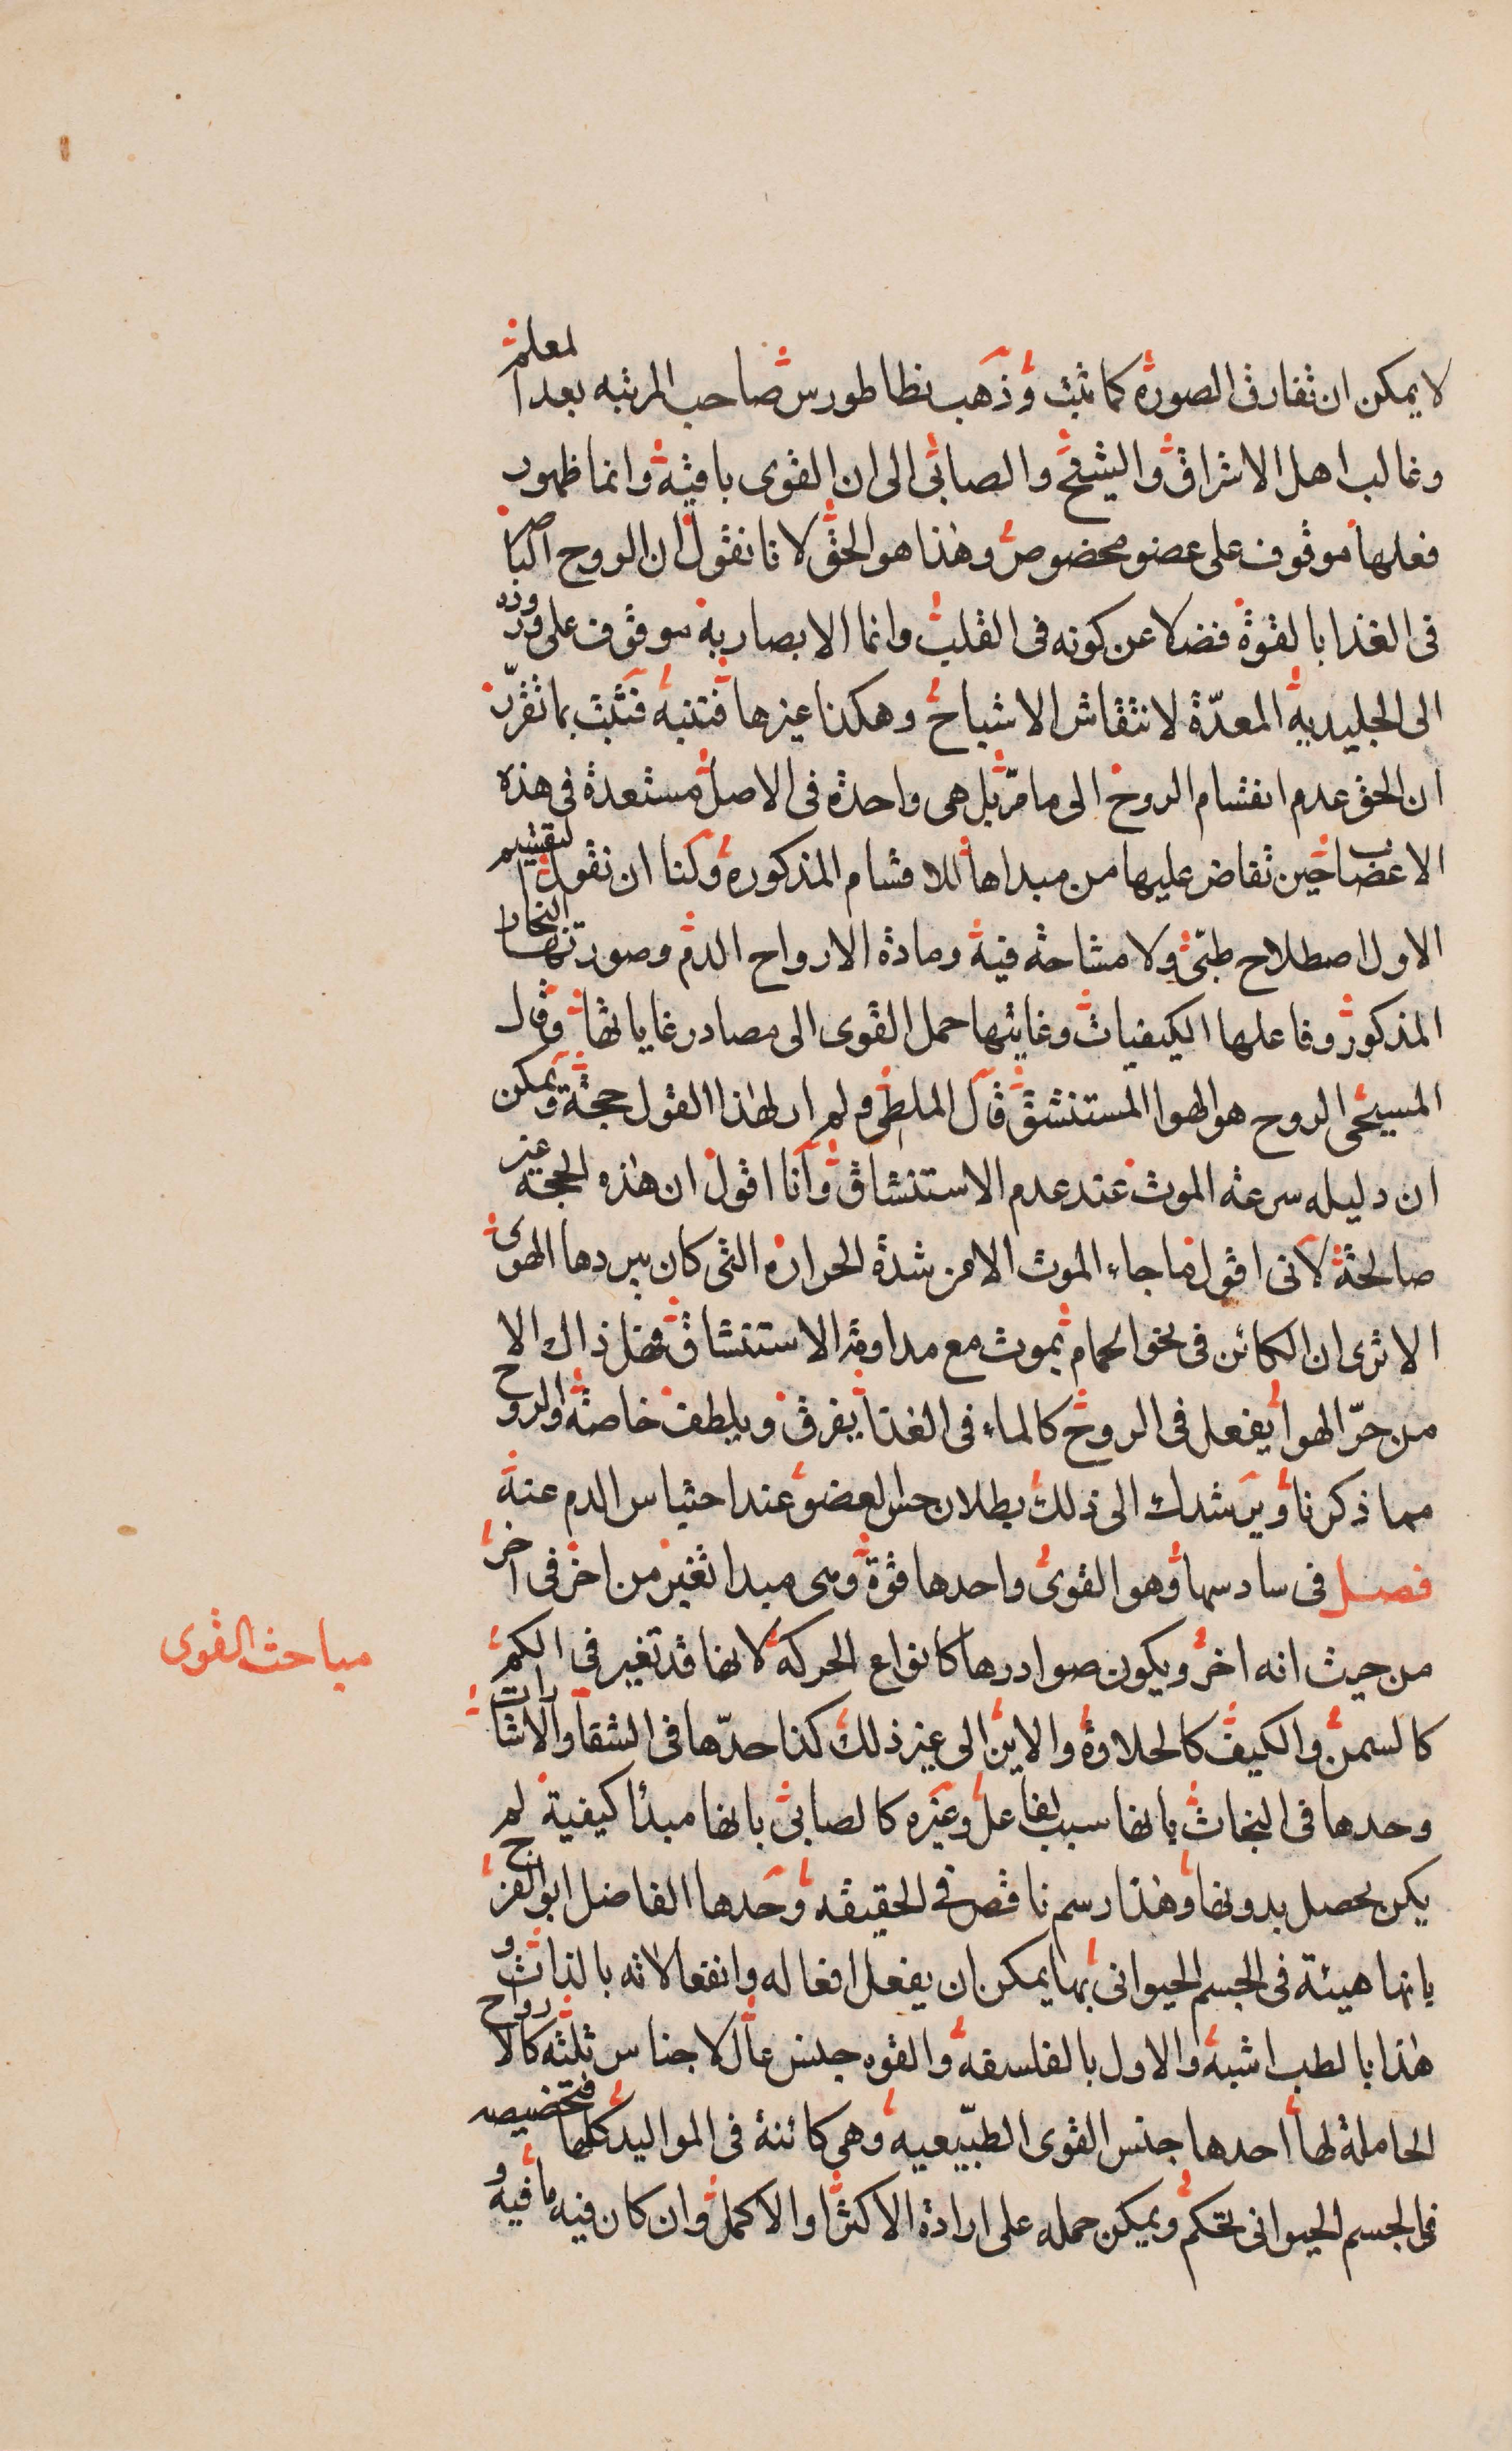 لا يمكن ان تفارق الصورة كما ثبت وذهب نظاطورس صاحب المرتبه بعد المعلم
وغالب اهل الاشراق والشيخ والصابى الى ان القوى باقية وانما ظهور
فعلها موقوف على عضو مخصوص وهذا هو الحق لانا نقول ان الروح الباصر
فى الغذا بالقوة فضلا عن كونه فى القلب وانما الابصار به موقوف على وروده
الى الجليدية المعدّة لانتقاش الاشباح وهكذا غيرها فتنبه فتثبت بما تقرّر
ان الحق عدم انقسام الروح الى ما مرّ بل هى واحدة فى الاصل مستعدة فى هذه
الاعضا حين تفاض عليها من مبداها للاقسام المذكورة ولنا ان نقول التقسيم
الاول اصطلاح طبّى ولا مشاحة فيه ومادة الارواح الدم وصورتها البخار
المذكور وفاعلها الكيفيات وغايتها حمل القوى الى مصادر غاياتها وقال
المسيحى الروح هو الهوا المستنشق قال الملطى ولم ار لهذا القول حجة ويمكن
ان دليله سرعة الموت عند عدم الاستنشاق وانا اقول ان هذه الحجة غير
صالحة لانى اقول ما جاء الموت الا من شدة الحرارة التى كان يبردها الهوى
الا ترى ان الكائن فى نحو الحمام يموت مع مداومة الاستنشاق وهل ذاك الا
من حرّ الهوا يفعل فى الروح كالماء فى الغذا يفرق ويلطف خاصة والروح
مما ذكرنا ويرشدك الى ذلك بطلان حس العضو عند احتباس الدم عنه
فصل فى سادسها وهو القوى واحدها قوة وهى مبدا تغير من اخر فى اخر
من حيث انه اخر ويكون صوادرها كانواع الحركة لانها قد تغير فى الكم
مباحث القوى
كالسمن والكيف كالحلاوة والاين الى غير ذلك كذا حدّها فى الشفا والاشارات
وحدها فى النجاة بانها سبب لفاعل وغيره كالصابى بانها مبدأ كيفية لم
يكن يحصل بدونها وهذا رسم ناقص فى الحقيقه وحدها الفاضل ابو الفرج
بانها هيئة فى الجسم الحيوانى بها يمكن ان يفعل افعاله وانفعالاته بالذات و
هذا بالطب اشبه والاول بالفلسفة والقوه جنس عال لاجناس ثلثه كالارواح
الحاملة لها احدها جنس القوى الطبّيعيه وهى كائنة فى المواليد كلها فتخصيصه
فى الجسم الحيوانى تحكم ويمكن حمله على ارادة الاكثر او الاكمل وان كان فيه ما فيه و